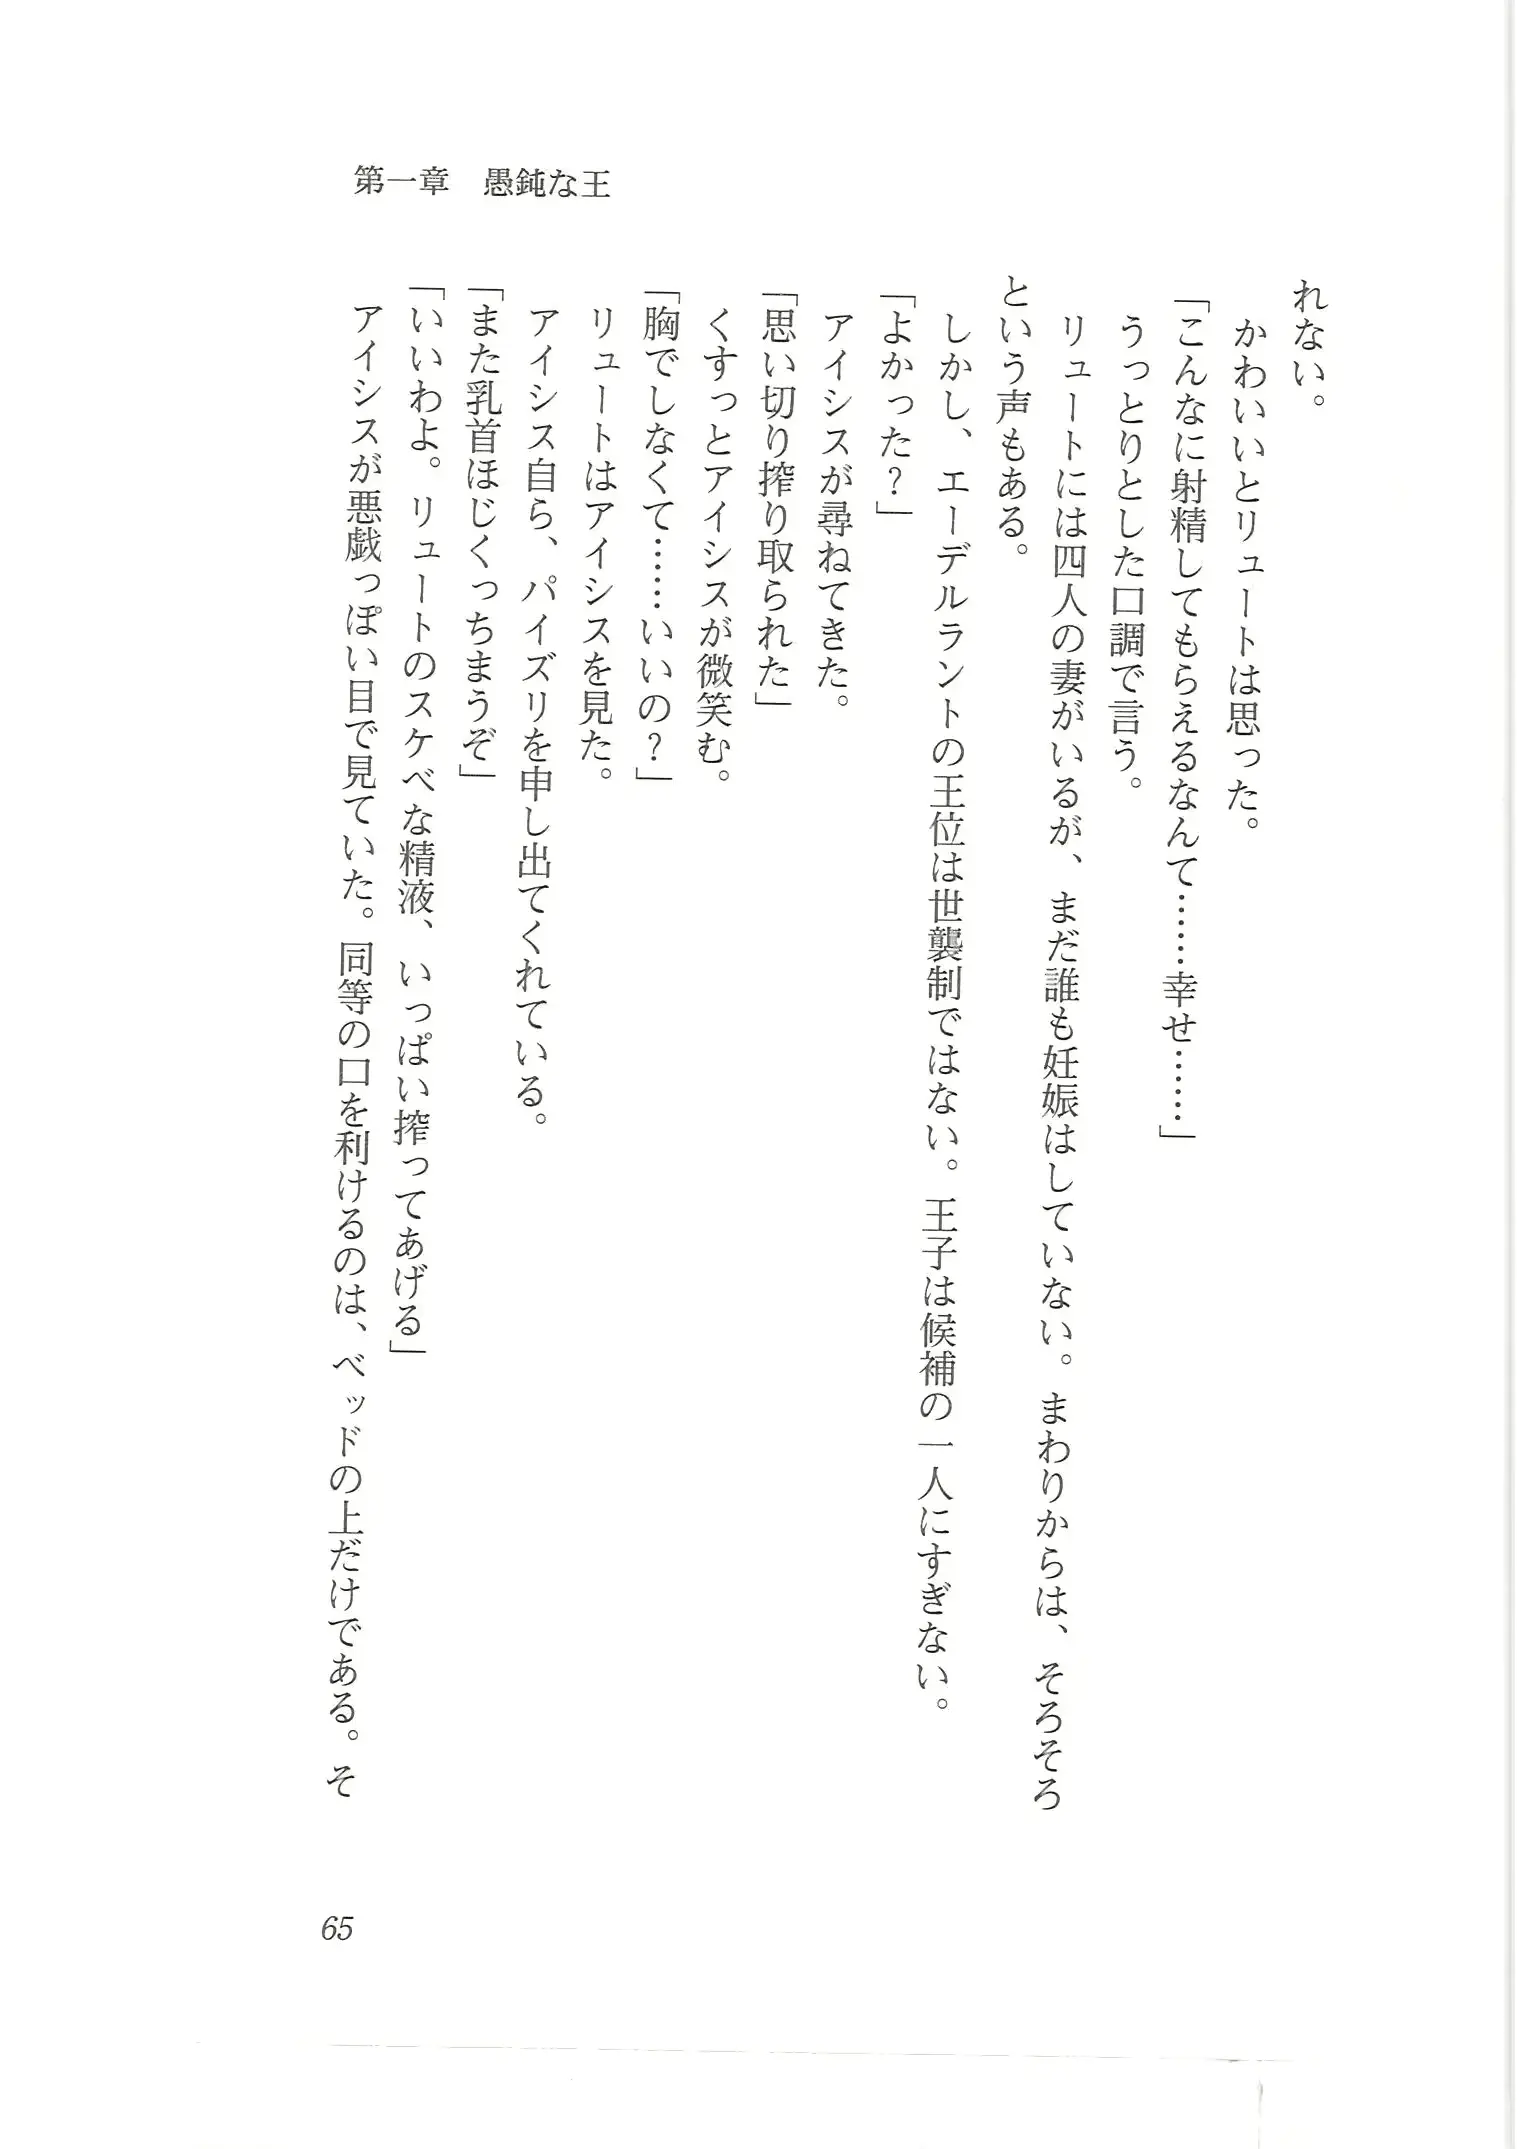 第一章　愚鈍な王
れない。
かわいいとリュートは思った。
「こんなに射精してもらえるなんて……幸せ……」
うっとりとした口調で言う。
リュートには四人の妻がいるが、まだ誰も妊娠はしていない。まわりからは、そろそろ
という声もある。
しかし、エーデルラントの王位は世襲制ではない。王子は候補の一人にすぎない。
「よかった？」
アイシスが尋ねてきた。
「思い切り搾り取られた」
くすっとアイシスが微笑む。
「胸でしなくて……いいの？」
リュートはアイシスを見た。
アイシス自ら、パイズリを申し出てくれている。
「また乳首ほじくっちまうぞ」
「いいわよ。リュートのスケベな精液、いっぱい搾ってあげる」
アイシスが悪戯っぽい目で見ていた。同等の口を利けるのは、ベッドの上だけである。そ
65